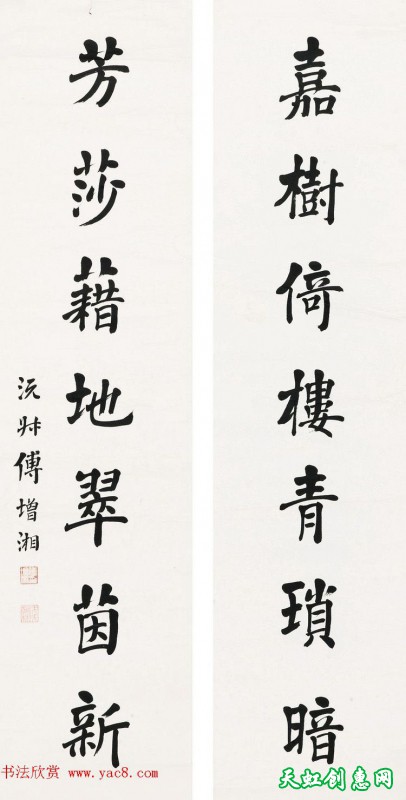 嘉樹倚樓青瑣暗
芳莎藉地翠茵新
沅叔傅增湘
书法欣赏 www.yac8.com
天虹创意网